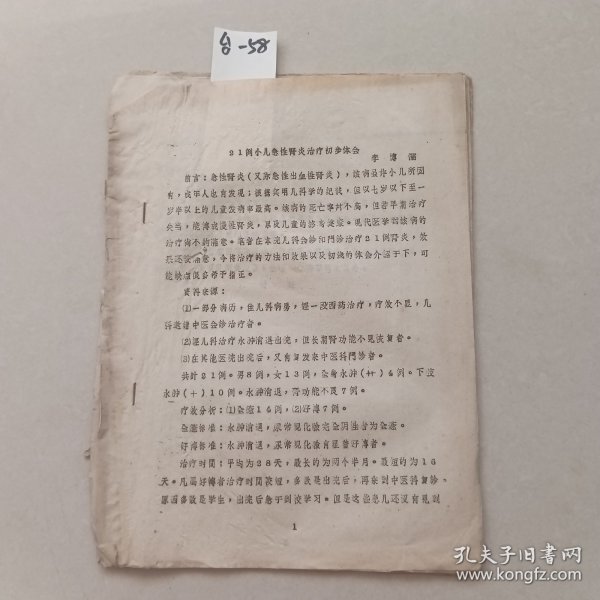 台-58
21例小儿急性肾炎治疗初步体会
李
前言：急性肾炎（又称急性出血性肾炎），该病虽许小儿所固
有，成年人也有发现；根据实用儿科学的纪载，但以七岁以下至一
岁半以上的儿童发病率最高。该病的死亡率均不高，但若早期治疗
失当，能转成慢性肾炎，以及儿童的终身迷症。现代医学对该病的
治疗尚不够满意。笔者在本院儿科会诊和門诊治疗21例肾炎，效
果还較满意，今将治疗的方法和效果以及初浅的体会介绍于下，可
能缺点很多希予指正。
資料来源：
(1)一部分病历，住儿科病房，经一般西药治疗，疗效不显，儿
科邀请中医会診治疗者。
(2)经儿科治疗水肿消退出院，但长期肾功能不见恢复者。
(3)在其他医院出院后，又有复发来中医科門診者。
共計21例。男8例，女13例，全身水肿(++)4例。下肢
水肿(+)10例。水肿消退，肾功能不良7例。
疗效分析：(1)全愈14例，(2)好轉7例。
全愈标准：水肿消退，尿常规化验完全阴性者为全愈。
好轉标准：水肿消退，尿常规化验有显著好轉者。
治疗时間：平均为28天，最长的为两个半月。最短的为16
天。凡属好轉者治疗时間較短，多数是出院后，再来到中医科复診，
原因多数是学生，出院后急于到校学习。但是这些患儿还没有见到
1
孔夫子旧书网
www.kongfz.com